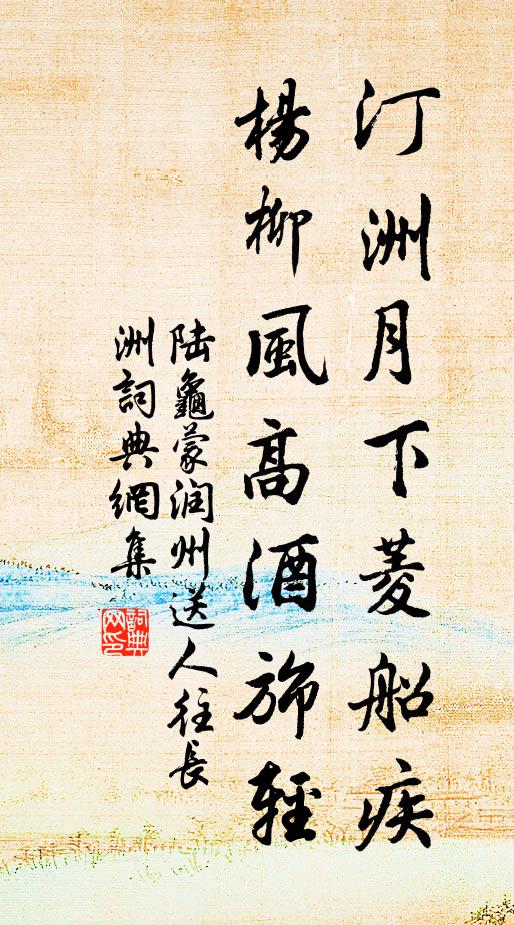 汀洲月下菱船疾
楊柳風高酒斾輕
陆龜蒙润州送人往長
洲詞典網集
詞典网印